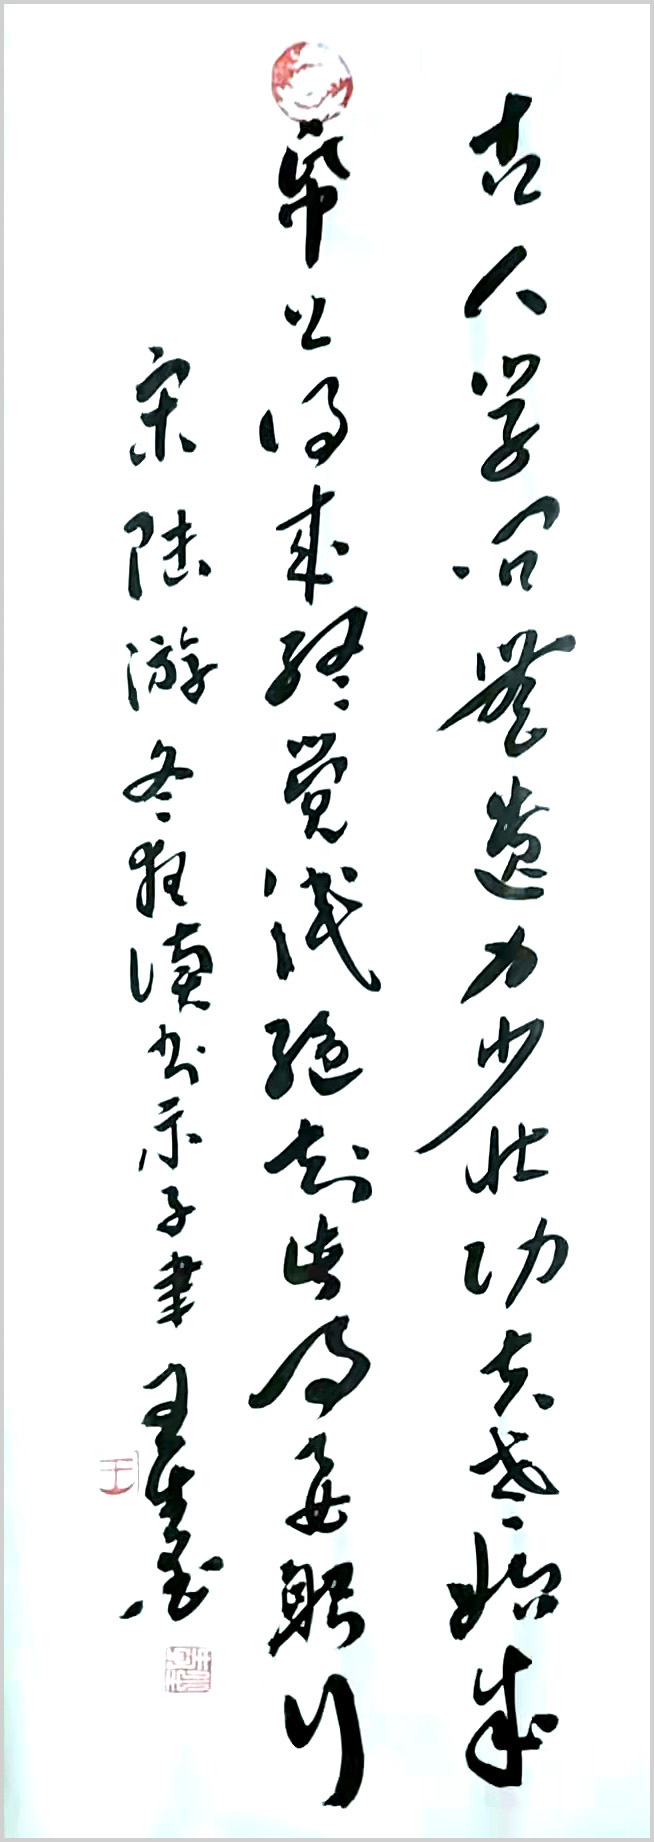 古人学问無遗力少壮功夫老始成
帋上得来终觉浅绝知此事要躬行
宋陆游冬夜读书示子聿 王